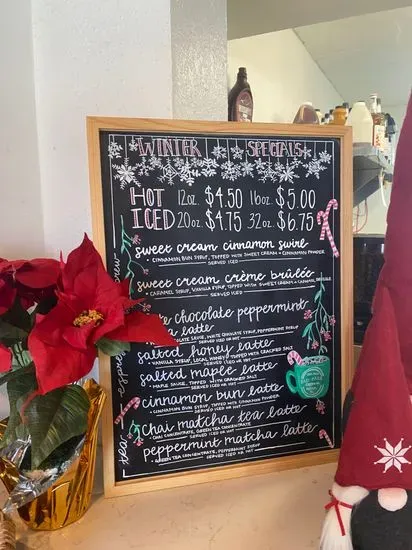 WINTER SPECIALS
HOT 12oz. $4.50 16oz. $5.00
ICED 20oz. $4.75 32oz. $6.75
sweet cream cinnamon swirl
• CINNAMON BUN SYRUP, TOPPED WITH SWEET CREAM + CINNAMON POWDER
SERVED ICED
sweet cream crème brûlée
• CARAMEL SYRUP, VANILLA SYRUP, TOPPED WITH SWEET CREAM + CARAMEL DRIZZLE
SERVED ICED
chocolate peppermint
latte
SAUCE, WHITE CHOCOLATE SYRUP, PEPPERMINT SYRUP
SERVED ICED OR HOT
salted honey latte
• VANILLA SYRUP, LOCAL HONEY, TOPPED WITH CRACKED SALT
SERVED ICED OR HOT
salted maple latte
• MAPLE SAUCE, TOPPED WITH CRACKED SALT
SERVED ICED OR HOT
cinnamon bun latte
• CINNAMON BUN SYRUP, TOPPED WITH CINNAMON POWDER
SERVED ICED OR HOT
chai matcha tea latte
• CHAI CONCENTRATE, GREEN TEA CONCENTRATE
SERVED ICED OR HOT
peppermint matcha latte
• GREEN TEA CONCENTRATE, PEPPERMINT SYRUP
SERVED ICED OR HOT
tea
brew